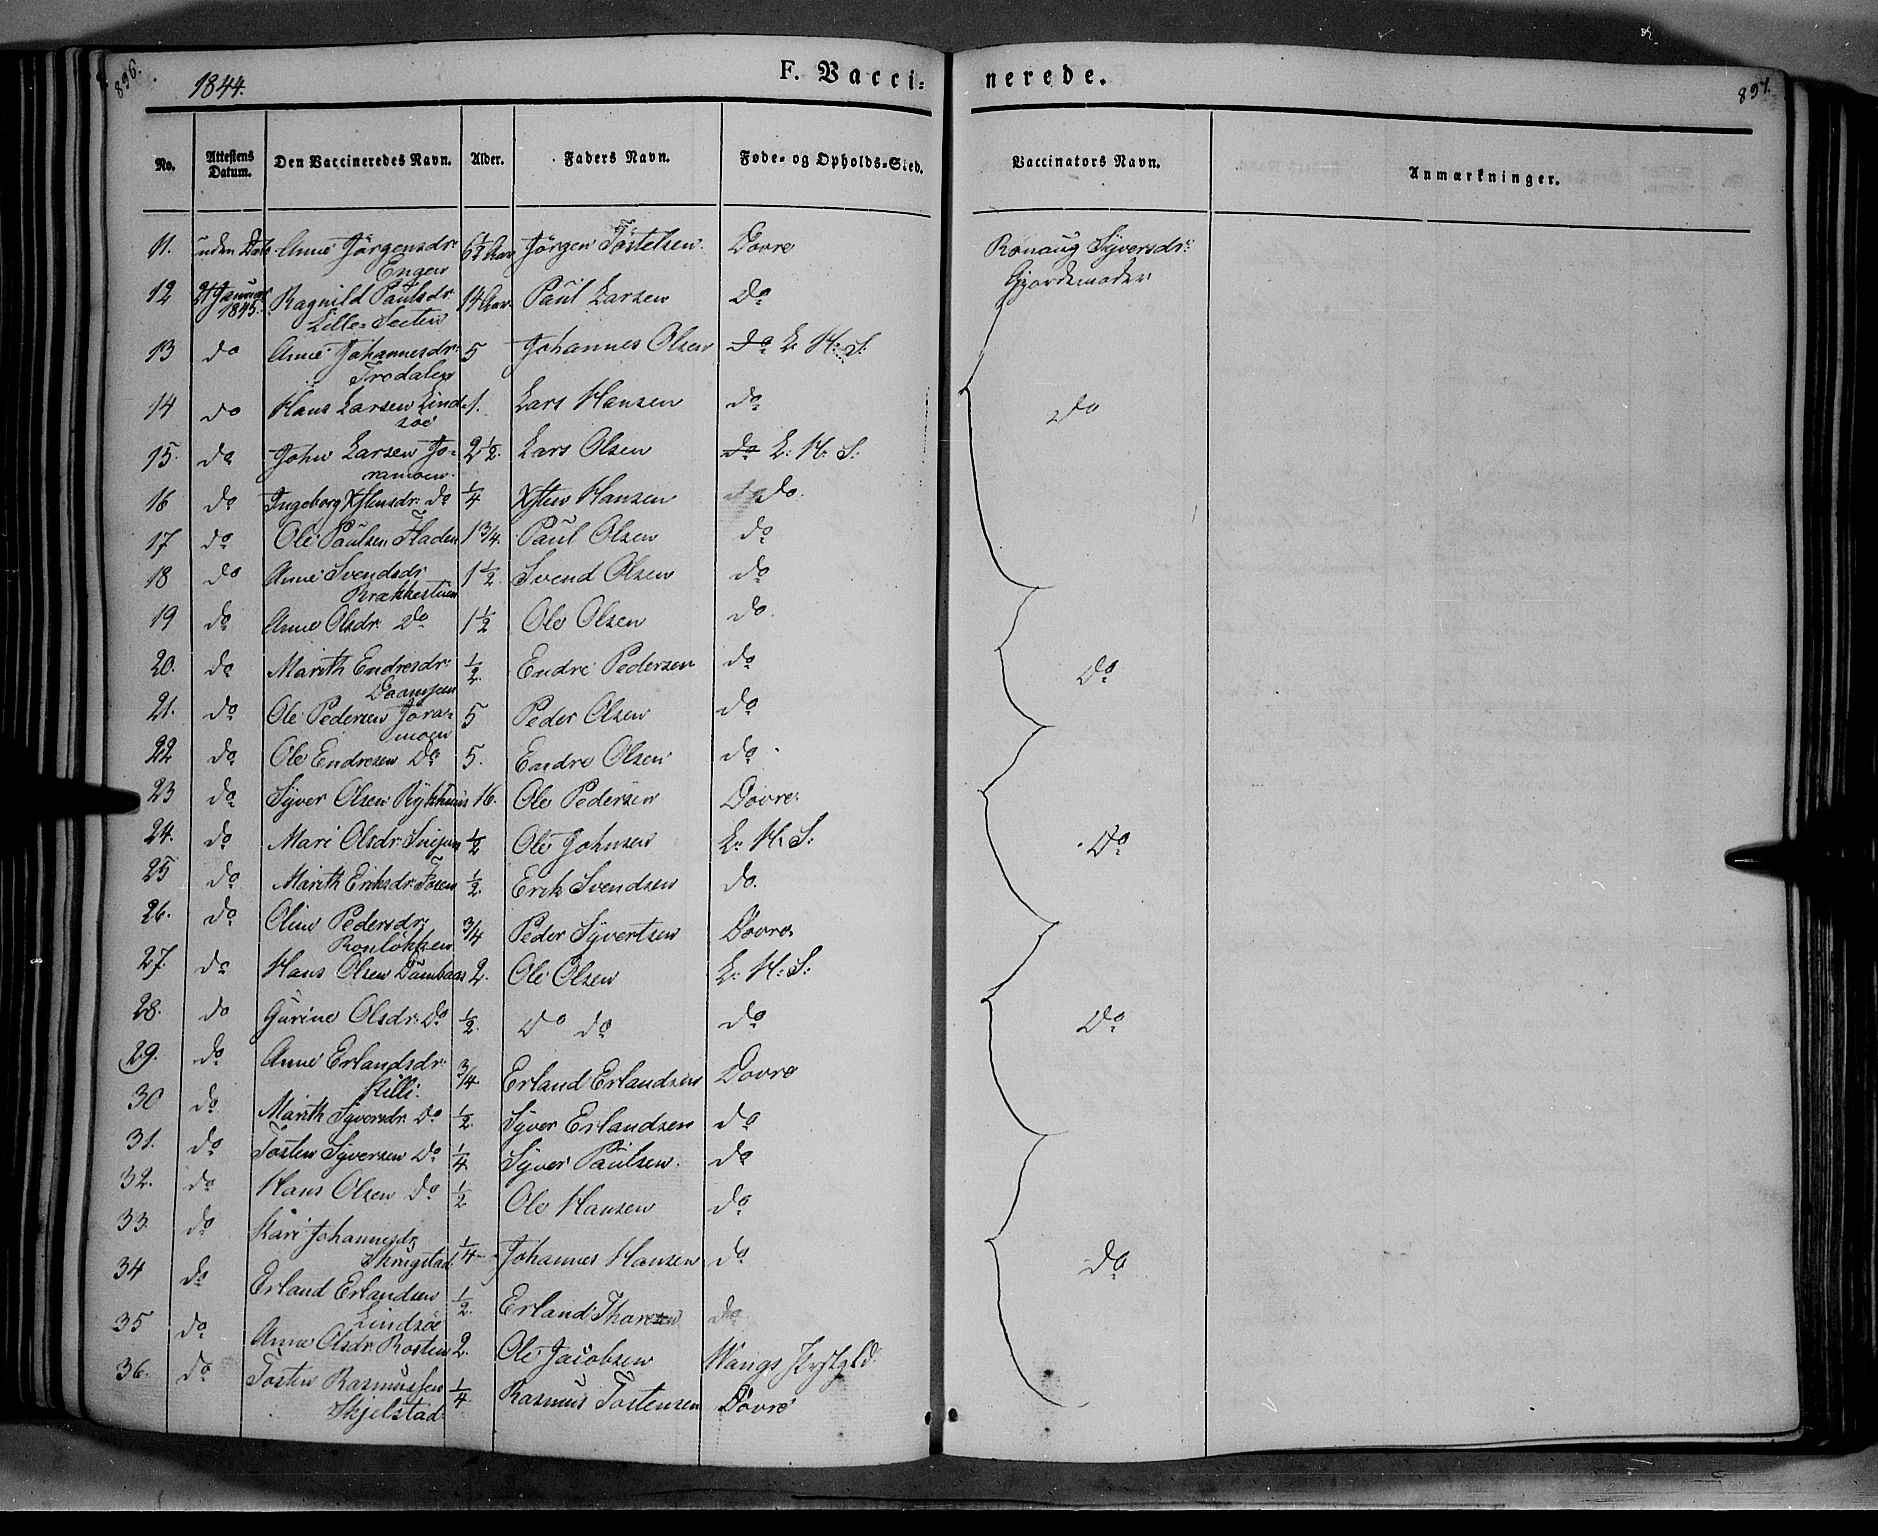 896.
1844.
F. Vacci=
nerede.
897.
No.
Attestens Datum.
Den Vaccineredes Navn.
Alder.
Faders Navn.
Føde- og Opholds-Sted.
Vaccinators Navn.
Anmærkninger.
11. uden Dato Anne Jørgensdr: 6½ Aar Jørgen Tostelsen. Dovre Ronaug Syversdr:
Engen Gjordemoder
12 21 Januar Ragnild Paulsdr 14 Aar Paul Larsen Do
1845. Lille-Seeten
13 do Anne Johannesdr: 5 Johannes Olsen do L: H: S:
Trodalen
14 do Hans Larsen Lind= 1. Lars Hansen do Do
søe
15. do John Larsen Jo= 2½. Lars Olsen do L: H: S:
ramoen.
16 do Ingeborg Xstensdr: do ¼ Xsten Hansen do.
17 do Ole Paulsen Fladen 1¾. Paul Olsen do
18 do Anne Svendsdr 1½. Svend Olsen do
Brækkestuen
19 do Anne Olsdr. Do 1½ Ole Olsen do.
20. do Marith Endresdr: ½. Endre Pedersen do Do
21. do Ole Pedersen Jora= 5 Peder Olsen do
moen
22 do Ole Endresen Do 5. Endre Olsen do
23 do Syver Olsen Rykhuus 16. Ole Pedersen Dovre.
24. do Mari Olsdr: ½ Ole Johnsen L: H: S: Do
25 do Marith Eriksdr: ½. Erik Svendsen do.
26. do Oline Pedersdr: ¾ Peder Syvertsen Dovre
Ronløkken
27. do Hans Olsen Dombaas 2. Ole Olsen L: H: S:
28. do Gurine Olsdr: Do ½. Do do do Do
29. do Anne Erlandsdr: ¾. Erland Erlandsen Dovre
Killi.
30 do Marith Syversdr. Do ½. Syver Erlandsen do
31. do Tosten Syversen Do ¼ Syver Paulsen. do
32. do Hans Olsen do ½ Ole Hansen do
33. do Kari Johannesdr. ¼ Johannes Hansen do Do
34 do Erland Erlandsen ½. Erland Thoresen do
Lindsøe
35 do Anne Olsdr. Rosten 2. Ole Jacobsen Wangs Prstgld.
36. do Tosten Rasmussen ¼ Rasmus Tostensen Dovre
Skjelstad